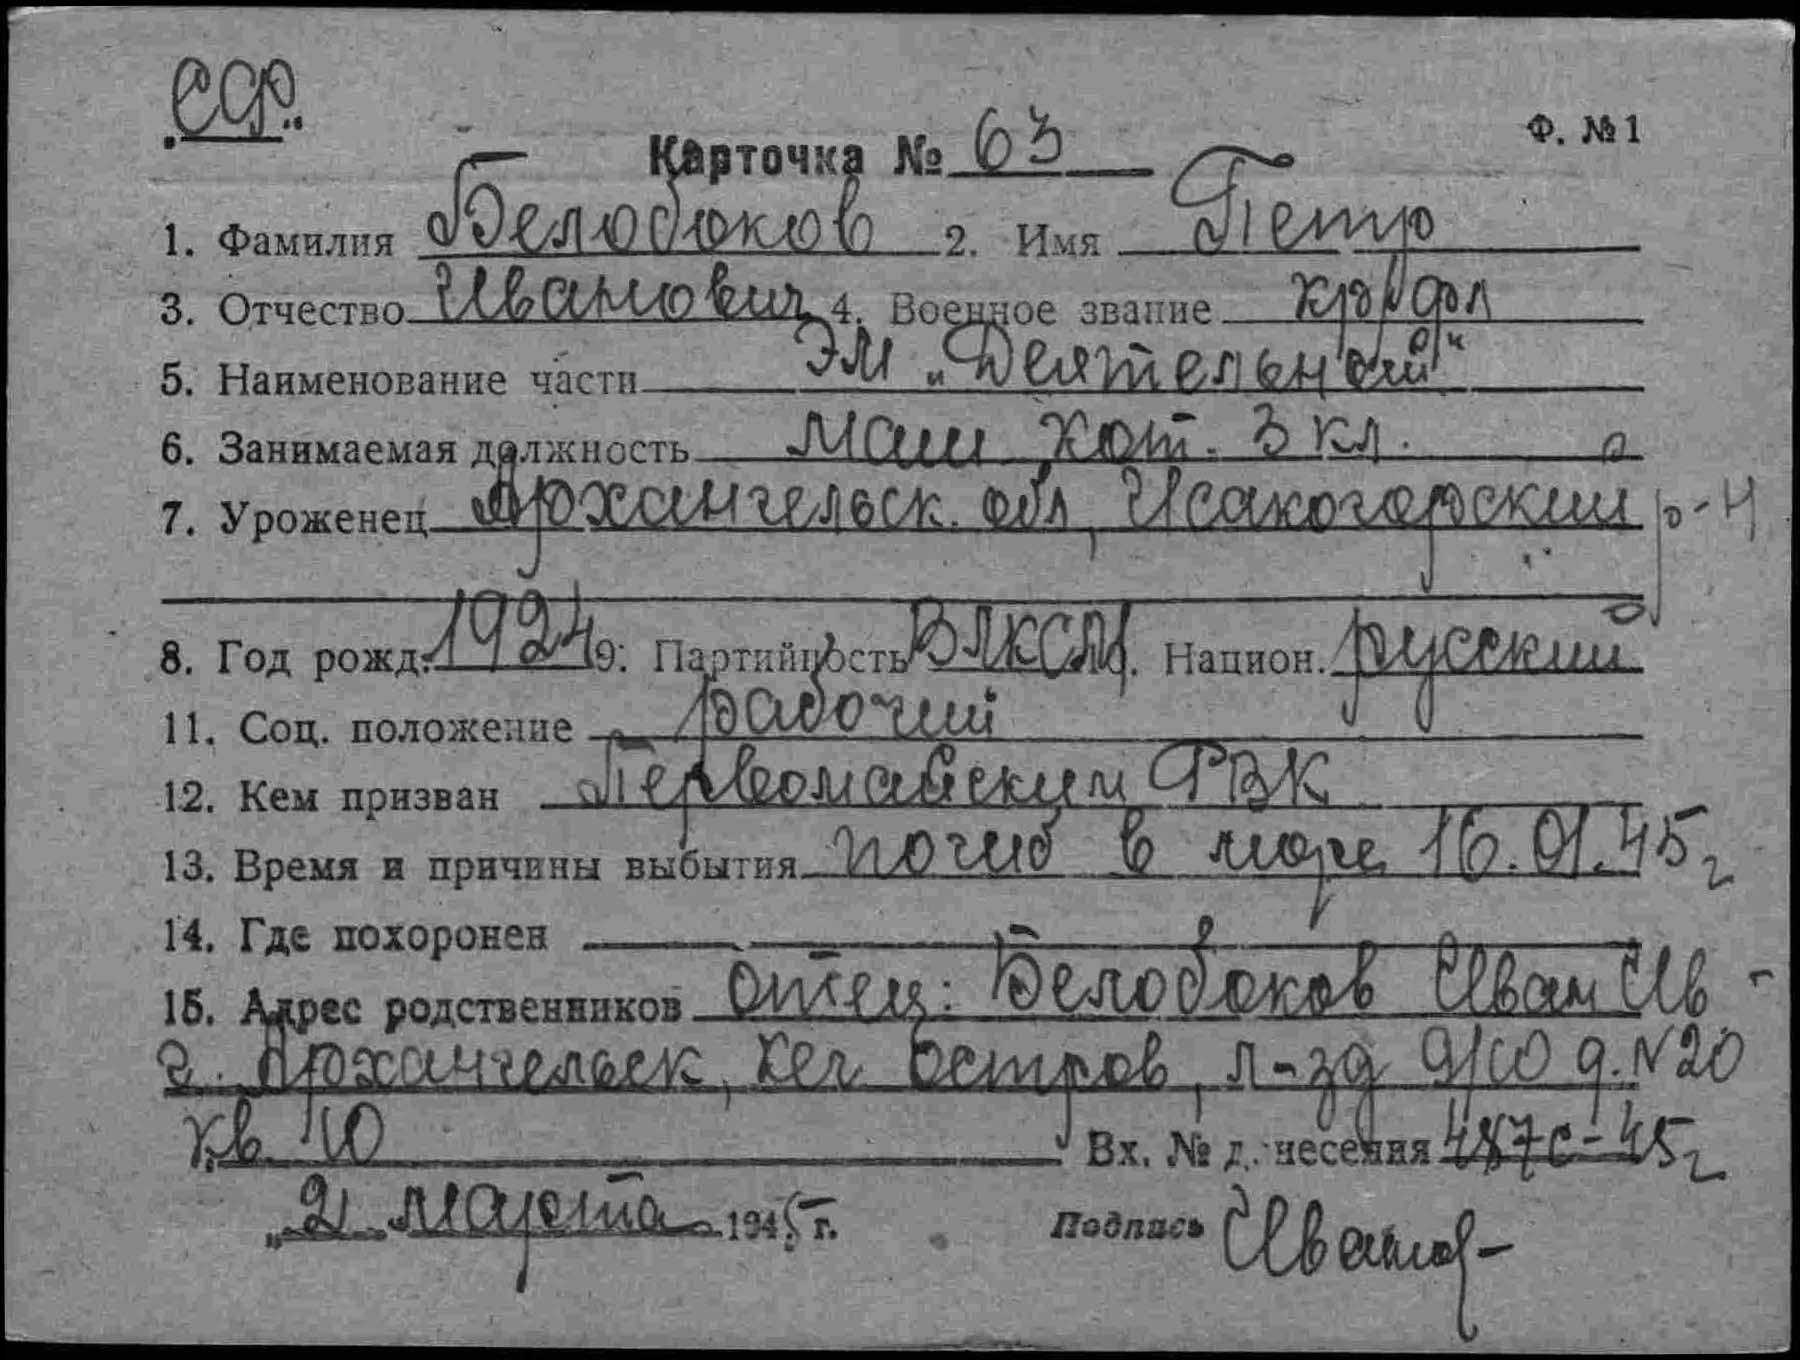 СФ.
Ф. №1
Карточка № 63
1. Фамилия Белобоков 2. Имя Петр
3. Отчество Иванович 4. Военное звание кр/фл
5. Наименование части ЭМ „Деятельный“
6. Занимаемая должность маш кот. 3 кл.
7. Уроженец Архангельск. обл, Исакогорский р-н
8. Год рожд. 1924 9. Партийность ВЛКСМ. Национ. русский
11. Соц. положение рабочий
12. Кем призван Первомайским РВК
13. Время и причины выбытия погиб в море 16.01.45 г
14. Где похоронен
15. Адрес родственников отец: Белобоков Иван Ив-
г. Архангельск, Кег остров, л-зд 9/10 д. №20
кв. 10 Вх. № донесения 487с-45 г
„2" марта 1945 г. Подпись